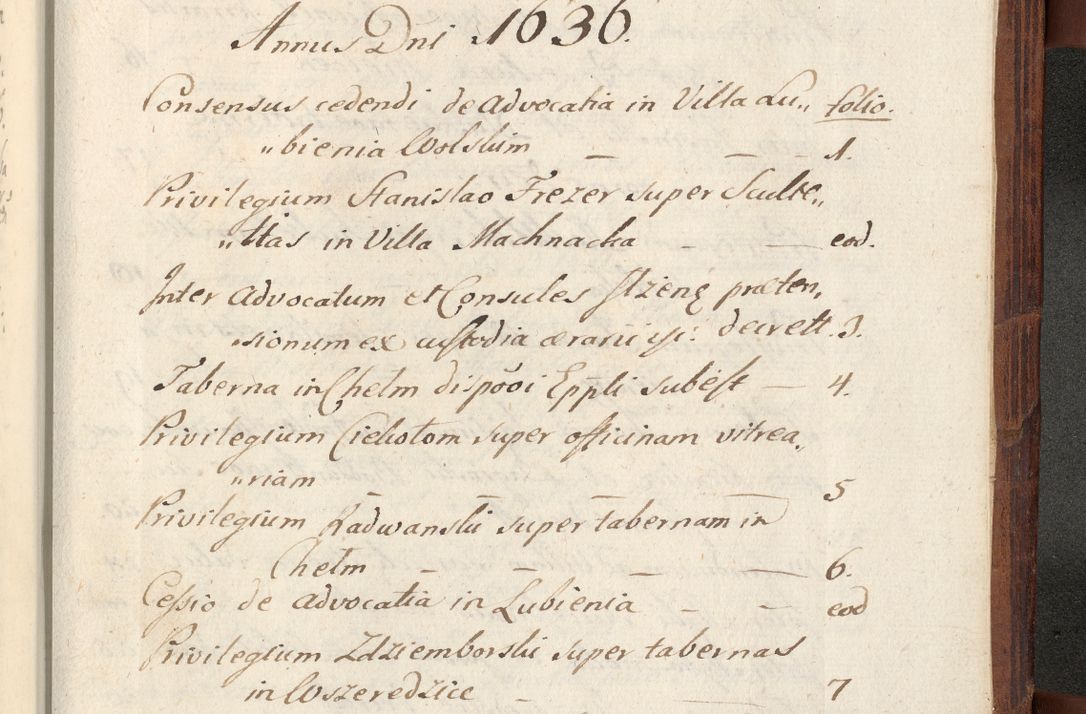 Annus Dni 1636.
Consensus cedendi de Advocatia in Villa Lu,, folio.
,,bienia Wolskim — — - 1.
Privilegium Stanislao Frezer super Sculte,,
,,ttas in Villa Machnacka — — eod.
Inter Advocatum et Consules Ilzenę præten,,
,,sionum ex custodia ærarii ipi: decrett. 3.
Taberna in Chelm dispõõi Eppli subest — 4.
Privilegium Cichotom super officinam vitrea,,
,,riam — — — — 5
Privilegium Radwanski super tabernam in
Chelm — — — — 6.
Cessio de Advocatia in Lubienia — — eod
Privilegium Zdziemborski super tabernas
in Wszeredzice - 7